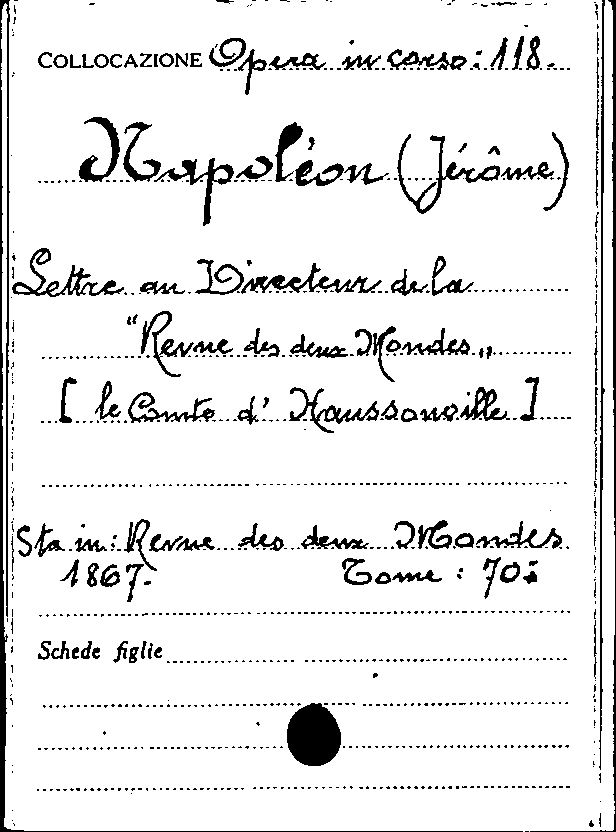 COLLOCAZIONE Opera in corso: 118.
Napoléon (Jérôme)
Lettre au Directeur de la
"Revue des deux Mondes„
[ le Comte d' Haussonville ]
Sta in: Revue des deux Mondes
1867. Tome : 70:
Schede figlie